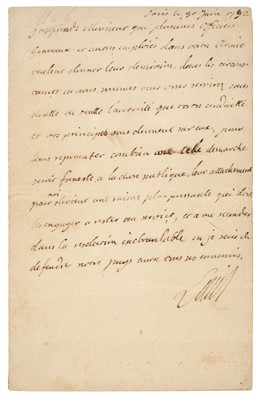 Paris le 30 Juin 1792
J'apprends Monsieur que plusieurs officiers
Généraux et autres employés dans votre Armée
veulent donner leur démission. dans les circons-
tances où nous sommes vous vous servirez sans
doute de toute l'autorité que votre conduite
et vos principes vous donnent sur eux, pour
leur representer combien une telle demarche
seroit funeste, à la chose publique, leur attachement
pour moi devient une raison plus puissante qui doit
les engager à rester au service, et à me seconder
dans la resolution inebranlable où je suis de
defendre notre pays contre tous ses ennemis.
Louis